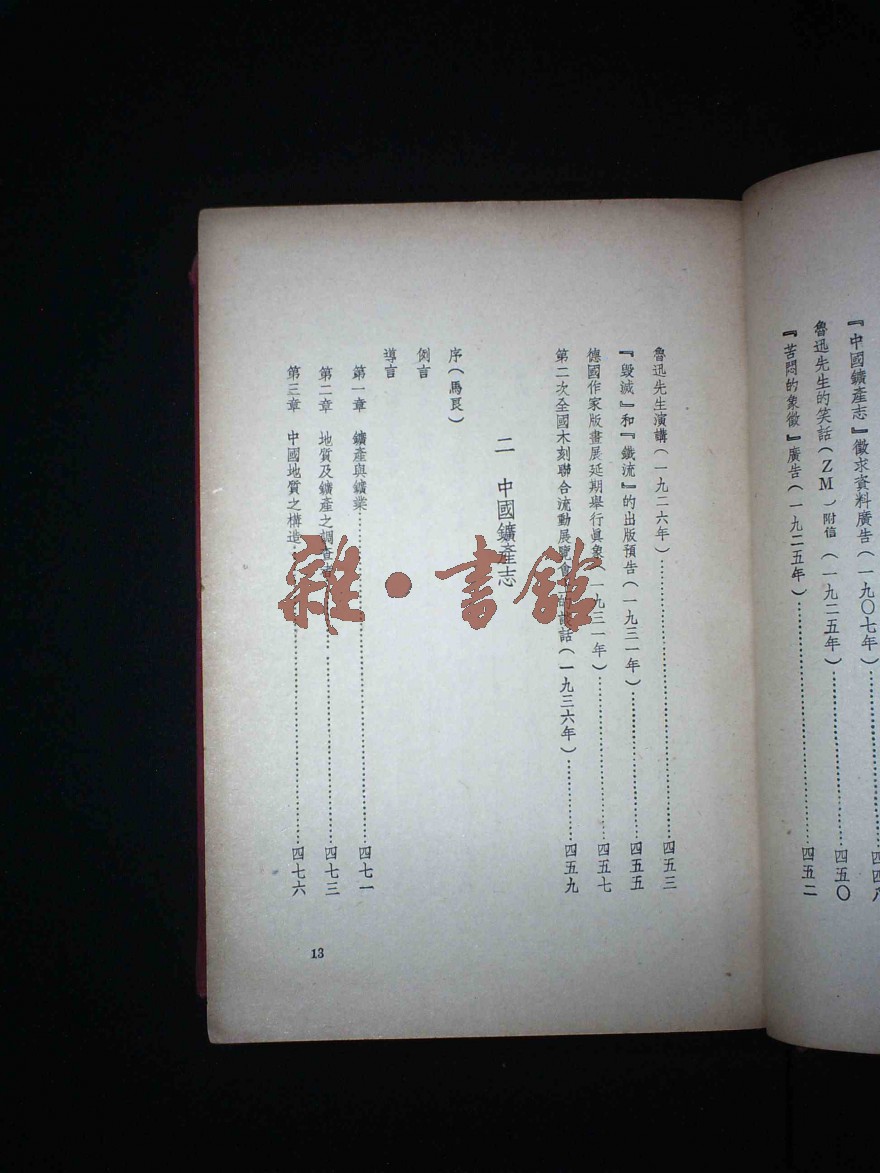 『中國鑛產志』徵求資料廣告(一九〇七年)……四四八
魯迅先生的笑話(ZM)附信 (一九二五年)……四五〇
『苦悶的象徵』廣告(一九二五年)……四五二
魯迅先生演講(一九二六年)……四五三
『毀滅』和『鐵流』的出版預告(一九三一年)……四五五
德國作家版畫展延期舉行眞象(一九三一年)……四五七
第二次全國木刻聯合流動展覽會上的談話(一九三六年)……四五九
二 中國鑛產志
序(馬良)
例言
導言
第一章 鑛產與鑛業……四七一
第二章 地質及鑛產之調查者……四七三
第三章 中國地質之構造……四七六
13
雜·書館